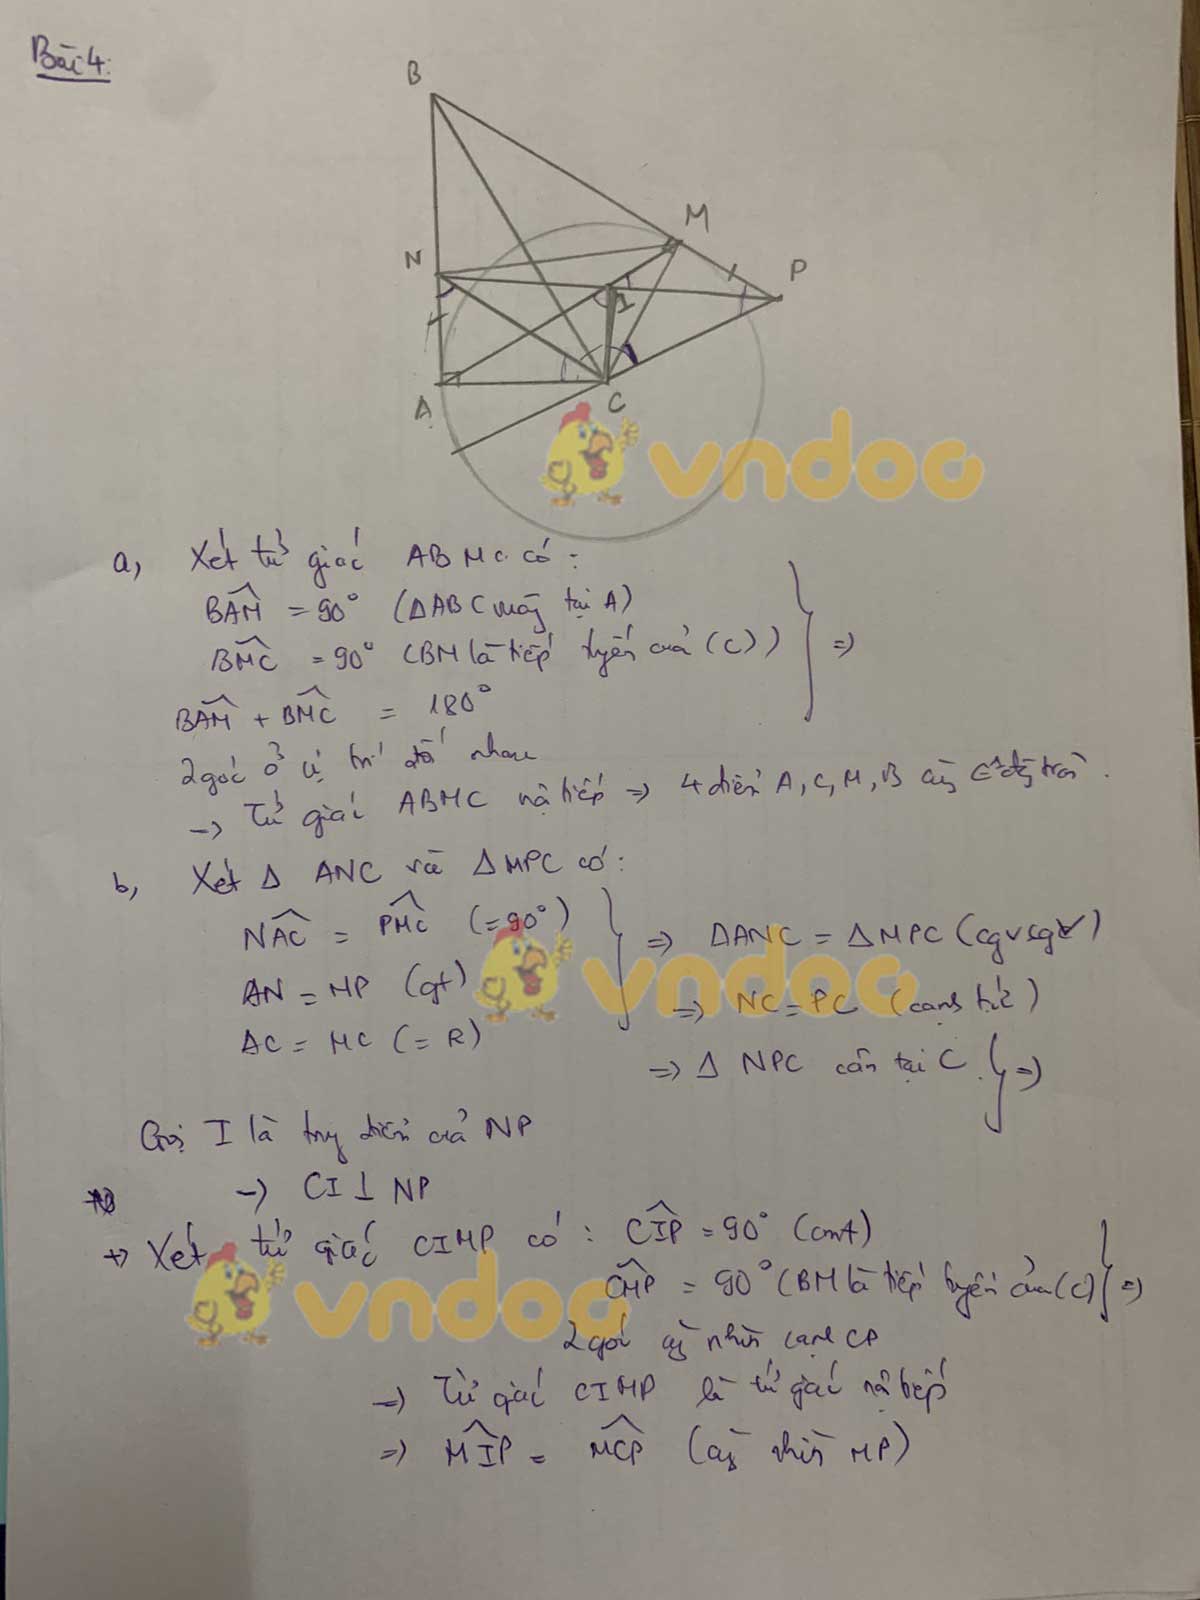 Bài 4:
B
M
N
P
I
A
C
vndoc
a, Xét tứ giác ABMC có:
BAM = 90° (ΔABC vuông tại A)
BMC = 90° (BM là tiếp tuyến của (C)) } =>
BAM + BMC = 180°
2 góc ở vị trí đối nhau
-> Tứ giác ABMC nội tiếp => 4 điểm A, C, M, B cùng ∈ đg tròn.
b, Xét Δ ANC và Δ MPC có:
NAC = PMC (=90°)
AN = MP (gt)
AC = MC (= R)
} => ΔANC = ΔMPC (cgv cgv)
vndoc
=> NC = PC (cạnh t/ứ)
=> Δ NPC cân tại C. } =>
Gọi I là trg điểm của NP
-> CI ⊥ NP
+> Xét tứ giác CIMP có: CIP = 90° (cmt)
CMP = 90° (BM là tiếp tuyến của (C)) } =>
vndoc
2 góc cg nhìn cạnh CP
-> Tứ giác CIMP là tứ giác nội tiếp
=> MIP = MCP (cg nhìn MP)